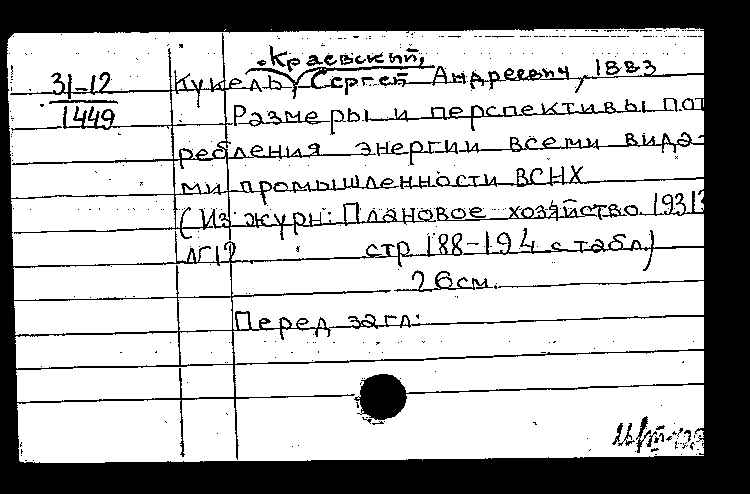 Краевский,
31-12 Кукель, Сергей Андреевич, 1883
1449 Размеры и перспективы пот
ребления энергии всеми вида-
ми промышленности ВСНХ
(Из журн: Плановое хозяйство 1931
№12 стр 188-194 с табл)
26см.
Перед загл: